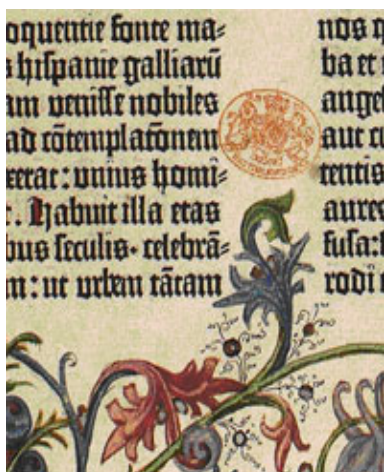 oquentie fonte ma⸗
hispanie galliarū
am venisse nobiles
ad cōtemplatōnem
xerat: unius homi⸗
. Habuit illa etas
bus seculis· celebrā⸗
m: ut urbem tātam
nos
ba et
ange
aut
tentis
aure
fusa:
rodi